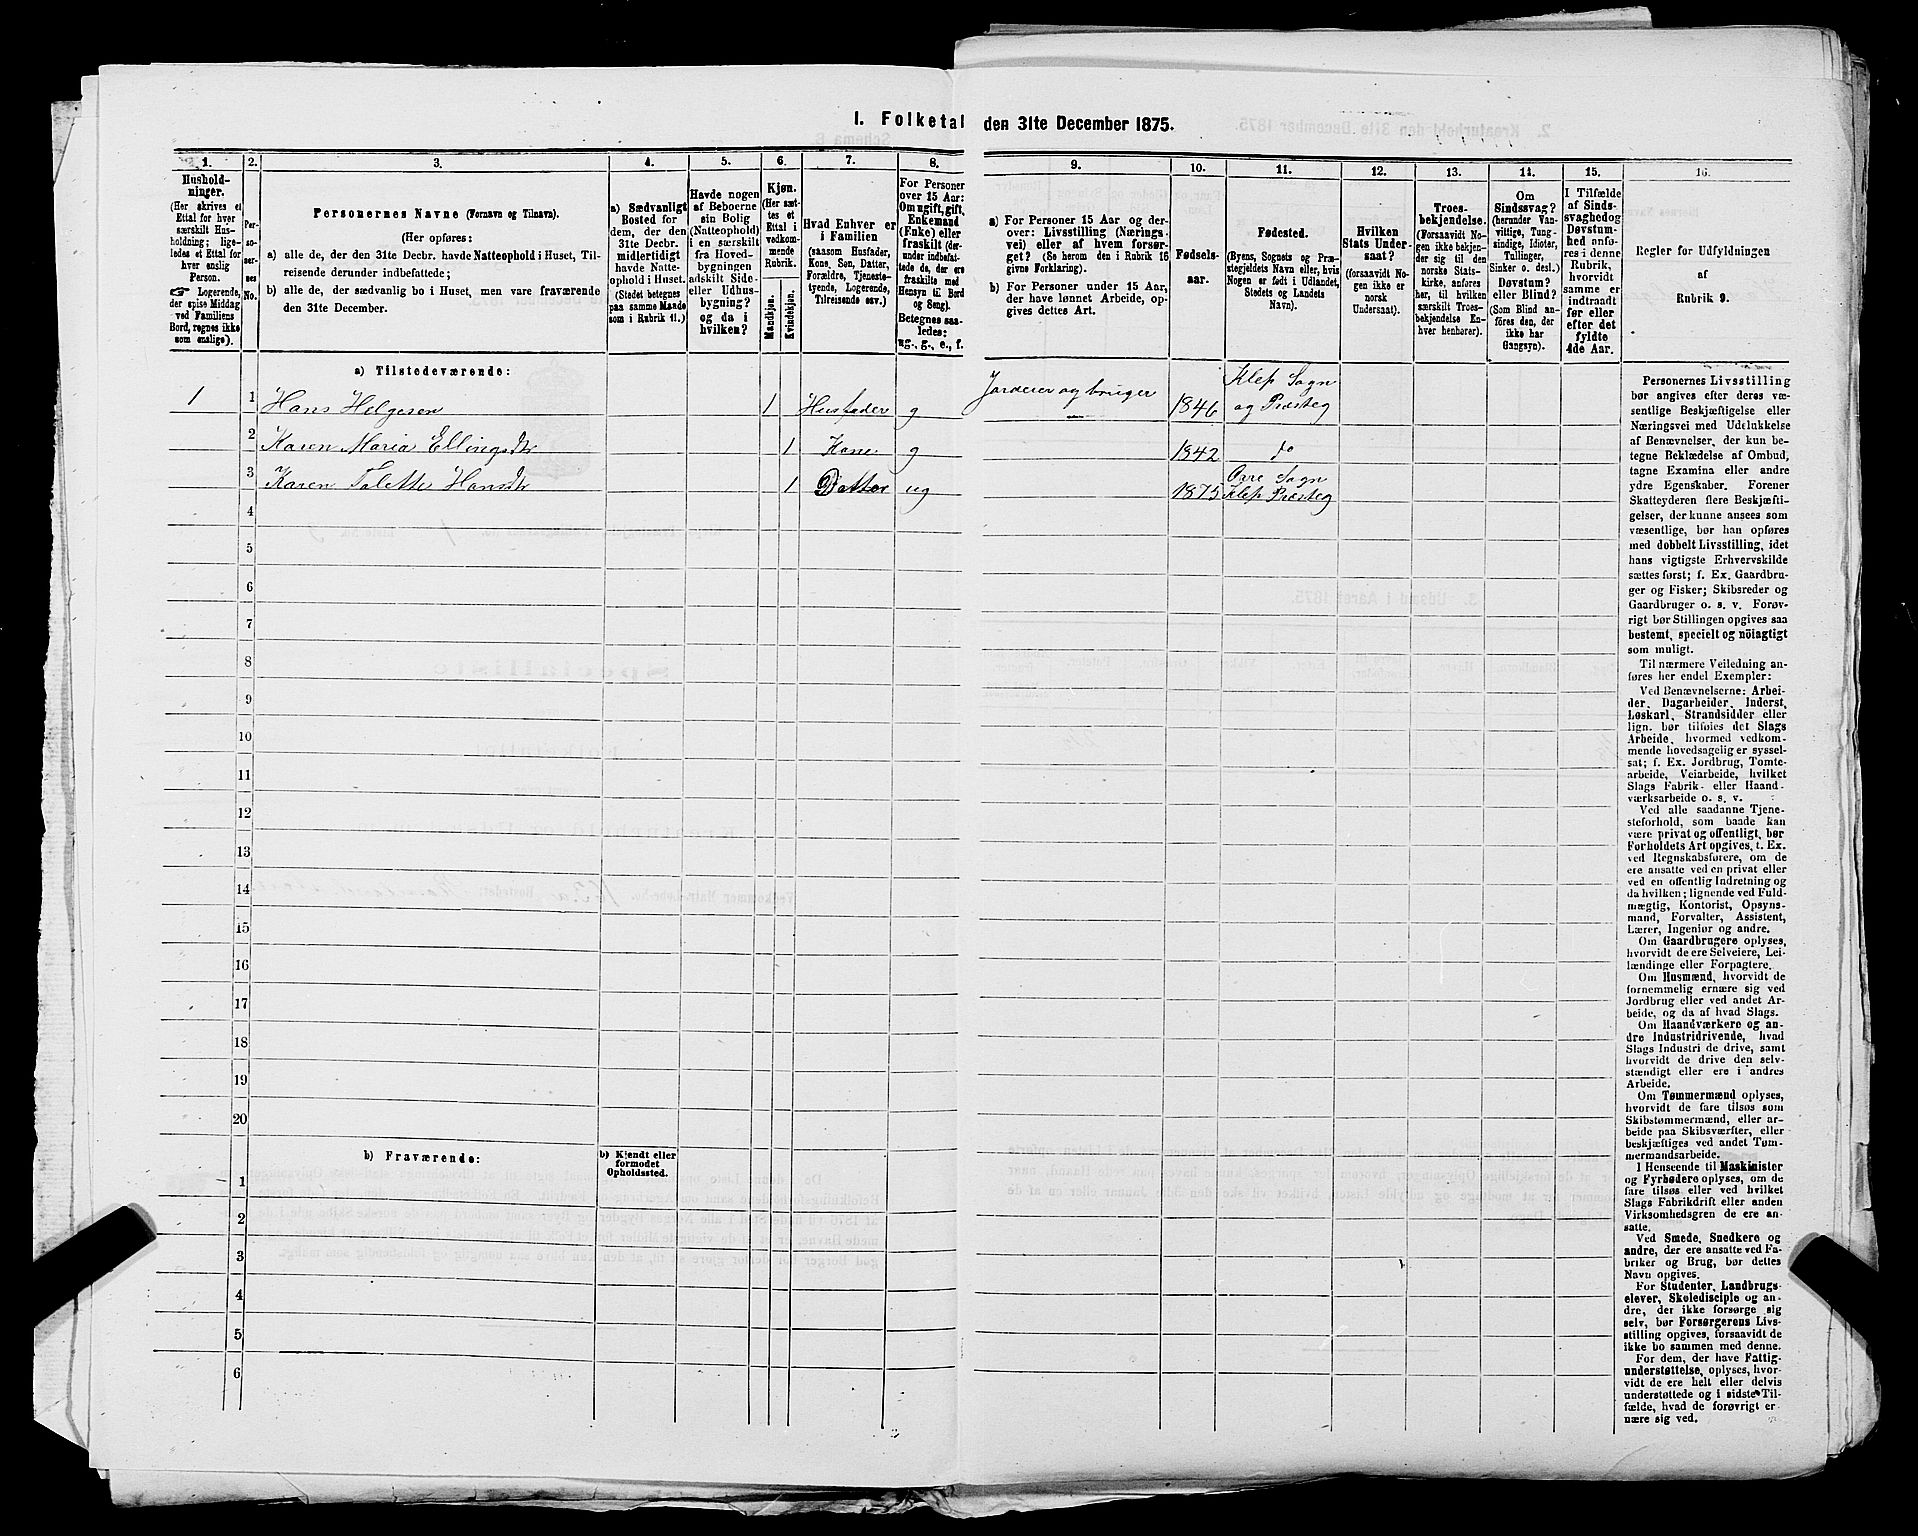 I. Folketal den 31te December 1875.
1.
2.
3.
4.
5.
6.
7.
8.
9.
10.
11.
12.
13.
14.
15.
16.
Hushold-
ninger.
(Her skrives et
Ettal for hver
særskilt Hus-
holdning; lige-
ledes et Ettal for
hver enslig
Person.
☞ Logerende,
der spise Middag
ved Familiens
Bord, regnes ikke
som enslige).
Per-
so-
ner-
nes
No.
Personernes Navne (Fornavn og Tilnavn).
(Her opføres:
a) alle de, der den 31te Decbr. havde Natteophold i Huset, Til-
reisende derunder indbefattede;
b) alle de, der sædvanlig bo i Huset, men vare fraværende
den 31te December.
a) Sædvanligt
Bosted for
dem, der den
31te Decbr.
midlertidigt
havde Natte-
ophold i Huset.
(Stedet betegnes
paa samme Maade
som i Rubrik 11.)
Havde nogen
af Beboerne
sin Bolig
(Natteophold)
i en særskilt
fra Hoved-
bygningen
adskilt Side-
eller Udhus-
bygning?
og da i
hvilken?
Kjøn.
(Her sæt-
tes et
Ettal i
vedkom-
mende
Rubrik.
Mandkjøn.
Kvindekjøn.
Hvad Enhver er
i Familien
(saasom Husfader,
Kone, Søn, Datter,
Forældre, Tjeneste-
tyende, Logerende,
Tilreisende osv.)
For Personer
over 15 Aar:
Om ugift, gift,
Enkemand
(Enke) eller
fraskilt (der-
under indbefat-
tede de, der ere
fraskilte med
Hensyn til Bord
og Seng).
Betegnes saa-
ledes:
ug., g., e., f.
a) For Personer 15 Aar og der-
over: Livsstilling (Nærings-
vei) eller af hvem forsør-
get? (Se herom den i Rubrik 16
givne Forklaring).
b) For Personer under 15 Aar,
der have lønnet Arbeide, op-
gives dettes Art.
Fødsels-
aar.
Fødested.
(Byens, Sognets og Præ-
stegjeldets Navn eller, hvis
Nogen er født i Udlandet,
Stedets og Landets
Navn).
Hvilken
Stats Under-
saat?
(forsaavidt No-
gen ikke er
norsk
Undersaat).
Troes-
bekjendelse.
(Forsaavidt No-
gen ikke bekjen-
der sig til den
norske Stats-
kirke, anføres
her, til hvilken
særskilt Troes-
bekjendelse En-
hver henhører).
Om
Sindssvag?
(herunder Van-
vittige, Tung-
sindige, Idioter,
Tullinger,
Sinker o. desl.)
Døvstum?
eller Blind?
(Som Blind an-
føres den, der
ikke har
Gangsyn).
I Tilfælde
af Sinds-
svaghed og
Døvstum-
hed anfø-
res i denne
Rubrik,
hvorvidt
samme er
indtraadt
før eller
efter det
fyldte
4de Aar.
Regler for Udfyldningen
af
Rubrik 9.
a) Tilstedeværende:
1 1 Hans Helgesen 1 Husfader g Jordeier og bruger 1846 Klep Sogn
og Præsteg
2 Karen Maria Ellingsdtr 1 Kone g 1842 do
3 Karen Talette Hansdtr 1 Datter ug 1875 Orre Sogn
Klep Præsteg
4
5
6
7
8
9
10
11
12
13
14
15
16
17
18
19
20
b) Fraværende:
b) Kjendt eller
formodet
Opholdssted.
1
2
3
4
5
6
Personernes Livsstilling
bør angives efter deres væ-
sentlige Beskjæftigelse eller
Næringsvei med Udelukkelse
af Benævnelser, der kun be-
tegne Beklædelse af Ombud,
tagne Examina eller andre
ydre Egenskaber. Forener
Skatteyderen flere Beskjæfti-
gelser, der kunne ansees som
væsentlige, bør han opføres
med dobbelt Livsstilling, idet
hans vigtigste Erhvervskilde
sættes først; f. Ex. Gaardbru-
ger og Fisker; Skibsreder og
Gaardbruger o. s. v. Forøv-
rigt bør Stillingen opgives saa
bestemt, specielt og nöiagtigt
som muligt.
Til nærmere Veiledning an-
føres her endel Exempler:
Ved Benævnelserne: Arbei-
der, Dagarbeider, Inderst,
Løskarl, Strandsidder eller
lign. bør tilføies det Slags
Arbeide, hvormed vedkom-
mende hovedsagelig er syssel-
sat; f. Ex. Jordbrug, Tomte-
arbeide, Veiarbeide, hvilket
Slags Fabrik- eller Haand-
værksarbeide o. s. v.
Ved alle saadanne Tjene-
steforhold, som baade kan
være privat og offentligt, bør
Forholdets Art opgives, t. Ex.
ved Regnskabsførere, om de
ere ansatte ved en privat eller
ved en offentlig Indretning og
da hvilken; lignende ved Fuld-
mægtig, Kontorist, Opsyns-
mand, Forvalter, Assistent,
Lærer, Ingeniør og andre.
Om Gaardbrugere oplyses,
hvorvidt de ere Selveiere, Lei-
lændinge eller Forpagtere.
Om Husmænd, hvorvidt de
fornemmelig ernære sig ved
Jordbrug eller ved andet Ar-
beide, og da af hvad Slags.
Om Haandværkere og an-
dre Industridrivende, hvad
Slags Industri de drive, samt
hvorvidt de drive den selv-
stændigt eller ere i andres
Arbeide.
Om Tømmermænd oplyses,
hvorvidt de fare tilsøs som
Skibstømmermænd, eller ar-
beide paa Skibsværfter, eller
beskjæftiges ved andet Tøm-
mermandsarbeide.
I Henseende til Maskinister
og Fyrbødere oplyses, om de
fare tilsøs eller ved hvilket
Slags Fabrikdrift eller anden
Virksomhedsgren de ere an-
satte.
Ved Smede, Snedkere og
andre, der ere ansatte ved Fa-
briker og Brug, bør dettes
Navn opgives.
For Studenter, Landbrugs-
elever, Skoledisciple og an-
dre, der ikke forsørge sig
selv, bør Forsørgerens Livs-
stilling opgives, forsaavidt de
ikke bo sammen med denne.
For dem, der have Fattig-
understøttelse, oplyses, hvor-
vidt de ere helt eller delvis
understøttede og i sidste Til-
fælde, hvad de forøvrigt er-
nære sig ved.